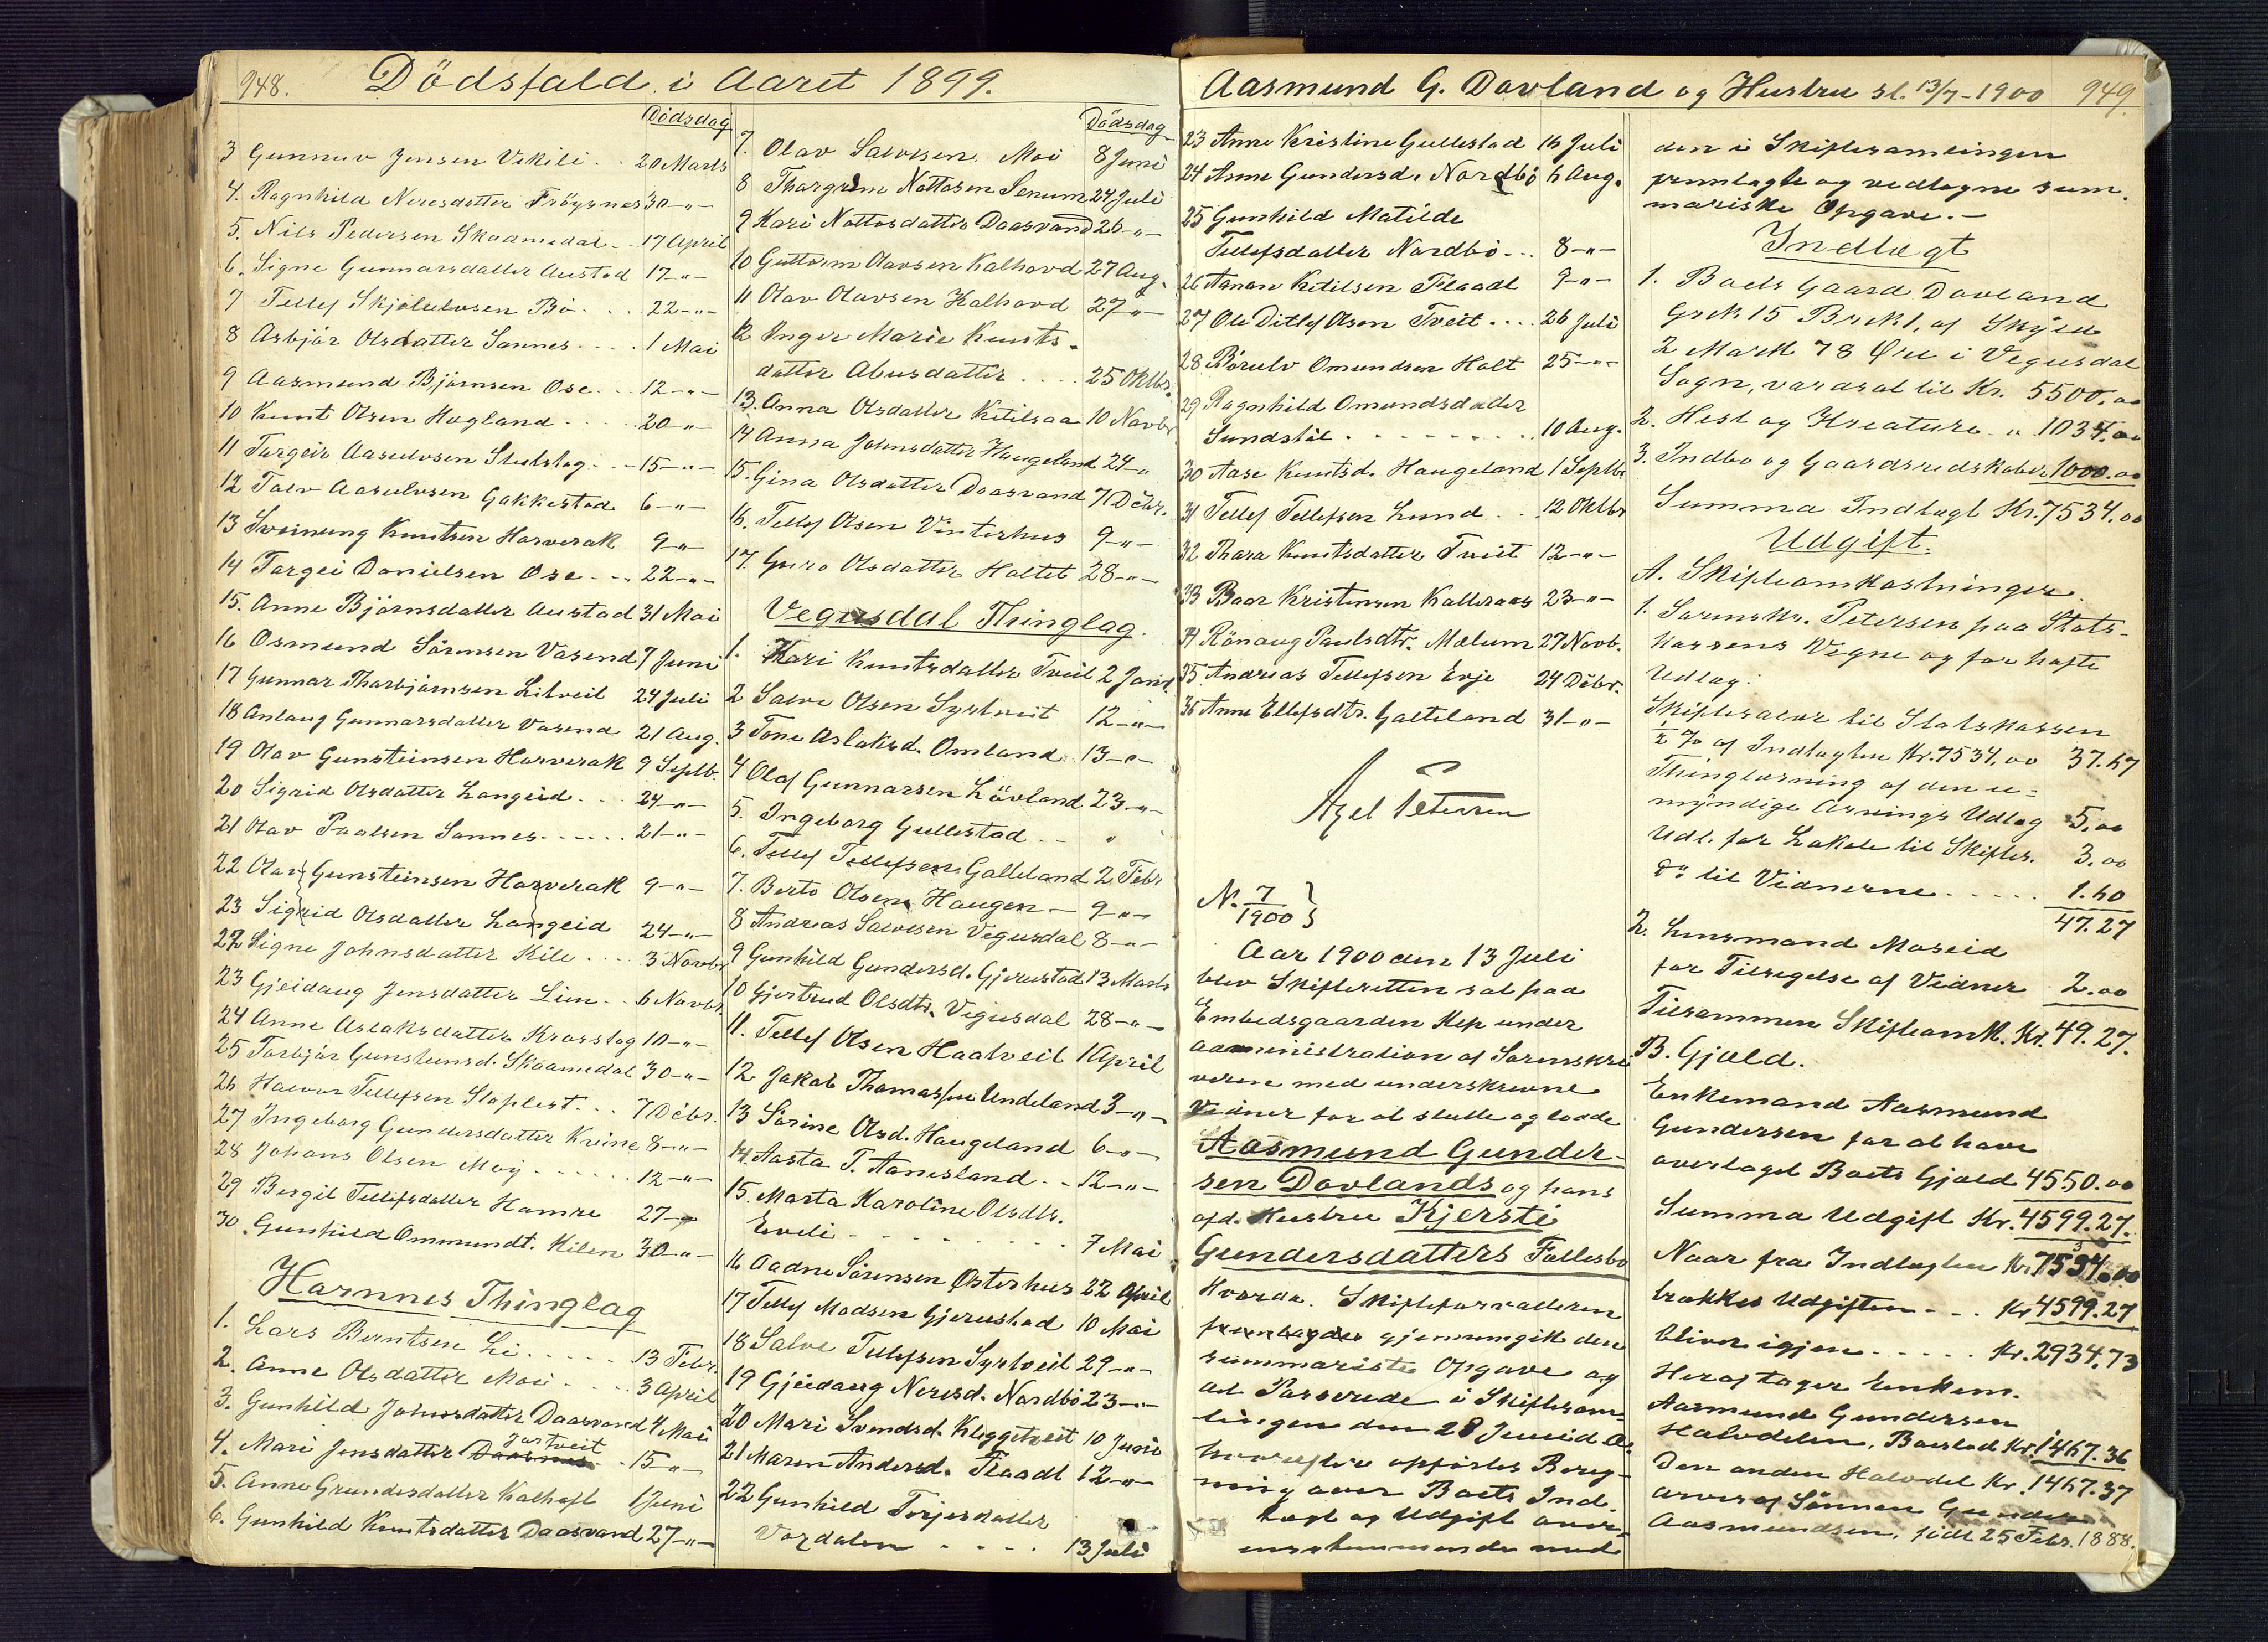 948. Dödsfald i Aaret 1899.
Dödsdag
3 Gunnuv Jensen Vikili .. 20 Marts
4. Ragnhild Neresdatter Fröysnes 30 -"-
5. Nils Pedersen Skaamedal .. 17 April
6. Signe Gunnarsdatter Austad 17 -"-
7 Tellef Skjölulvsen Bö .... 22 -"-
8 Asbjör Olsdatter Sannes .... 1 Mai
9 Aasmund Björnsen Ose ... 12 -"-
10 Knut Olsen Hægland ..... 20 -"-
11 Targeir Aasulvsen Stutslog ... 15 -"-
12 Talv Aasulvsen Gakkestad 6 -"-
13 Sveinung Knutsen Harverak 9 -"-
14 Targei Danielsen Ose ... 22 -"-
15. Anne Björnsdatter Austad 31 Mai
16 Osmund Sörensen Vasend 7 Juni
17 Gunnar Thorbjörnsen Litveit 24 Juli
18 Anlaug Gunnarsdatter Vasend 21 Aug.
19 Olav Gunsteinsen Harverak 9 Septb.
20 Sigrid Olsdatter Langeid ... 24 -"-
21 Olav Paalsen Sannes ...... 21 -"-
22 Olav Gunsteinsen Harverak 9 -"-
23 Sigrid Olsdatter Langeid 24 -"-
22 Signe Johnsdatter Kile .... 3 Novbr
23 Gjeidaug Jensdatter Lien .. 6 Novbr.
24 Anne Aslaksdatter Krosslog 10 -"-
25 Torbjör Gunsteinsd. Skaamedal 30 -"-
26 Halvor Tellefsen Stoplest... 7 Debr.
27 Ingeborg Gundersdatter Kvine 8 -"-
28 Johans Olsen Moy ..... 12 -"-
29 Bergit Tellefsdatter Hamre 27 -"-
30. Gunhild Ommundt. Kilen 30 -"-
Hornnes Thinglag
1. Lars Berntsen Li ..... 13 Febr.
2. Anne Olsdatter Moi .... 3 April
3. Gunhild Johnsdatter Daasvand 4 Mai
4. Mari Jensdatter Daasnes Jortveit . 15 -"-
5. Anne Grundesdatter Kalhoft 1 Juni
6. Gunhild Knutsdatter Daasvand 27 -"-
Dödsdag
7. Olav Salvesen Moi 8 Juni
8 Thorgrim Nottosen Senum 24 Juli
9 Kari Nottosdatter Daasvand 26 -"-
10 Guttorm Olavsen Kalhovd 27 Aug.
11 Olav Olavsen Kalhovd 27 -"-
12 Inger Marie Knuts-
datter Abusdatter .... 25 Oktbr.
13. Anna Olsdatter Ketilsaa 10 Novbr.
14 Anna Johnsdatter Haugeland 24 -"
15. Gina Olsdatter Daasvand 7 Debr.
16. Tellef Olsen Vinterhus 9 -"-
17. Guro Olsdatter Holtet 28 -"-
Vegusdal Thinglag.
1. Kari Knutsdatter Tveit 2 Janr.
2 Salve Olsen Syrtveit 12 -"-
3 Tone Aslaksd. Omland 13 -"-
4 Olaf Gunnarsen Lövland 23 -"-
5. Ingeborg Gullestad .. "
6. Tellef Tellefsen Galteland 2 Febr
7. Berte Olsen Haugen - 9 -"-
8 Andreas Salvesen Vegusdal 8 -"-
9 Gunhild Gundersd. Gjerustad 13 Marts
10 Gjertrud Olsdtr. Vegusdal 28 -"-
11. Tellef Olsen Haatveit 1 April
12 Jakob Thomassen Undeland 3 -"-
13 Sörine Olsd. Haugeland 6 -"-
14. Aasta T. Aanesland .. 12 -"-
15. Marta Karoline Olsdtr.
Eveli ......... 7 Mai
16 Aadne Sörensen Østerhus 22 April
17 Tellef Madsen Gjerustad 10 Mai
18 Salve Tellefsen Syrtveit 29 -"-
19 Gjeidaug Neresd. Nordbö 23 -"-
20 Mari Svendsd. Kleggetveit 10 Juni
21 Maren Andersd. Flaadt 12 -"-
22 Gunhild Torjusdatter
Vordalen .... 13 Juli
Aasmund G. Dovland og Hustru sl. 13/7-1900 949.
23 Anne Kristine Gullestad 16 Juli
24 Anne Gundersd. Nordbö 6 Aug.
25 Gunhild Matilde
Tellefsdatter Nordbö ... 8 -"-
26 Aanon Ketilsen Flaadt 9 -"-
27 Ole Ditlef Olsen Tveit .... 26 Juli
28 Börulv Omundsen Holt 25 -"-
29 Ragnhild Omundsdatter
Sundstöl ........ 10 Aug.
30 Aase Knutsd. Haugeland 1 Septbr
31 Tellef Tellefsen Lund .. 12 Oktbr
32 Thora Knutsdatter Tveit 12 -"-
33 Baar Kristensen Kalleraas 23 -"-
34 Rönaug Paulsdtr. Mælum 27 Novb.
35 Andreas Tellefsen Evje 24 Debr.
36 Anne Ellefsdtr. Galteland 31 -"-
Axel Petersen
No. 7/1900
Aar 1900 den 13 Juli
blev Skifteretten sat paa
Embedsgaarden Kep under
administration af Sorenskri
veren med underskrevne
Vidner for at slutte og lodde
Aasmund Gunder-
sen Dovlands og hans
afd. Hustru Kjersti
Gundersdatters Fællesbo
Hvorda. Skifteforvalteren
fremlagdes gjennemgik den
summariske Opgave og
det Passerede i Skiftesam-
lingen den 28 Juni d. A.
hvorefter opførtes Bereg-
ning over Boets Ind-
tægt og Udgift over-
ensstemmende med
den i Skiftesamlingen
fremlagte og vedtagne sum-
mariske Opgave. -
Indtægt
1. Boets Gaard Dovland
Grd. 15 Brk. 1, af Skyld
2 Mark 78 Øre i Vegusdal
Sogn, varderet til Kr. 5500.00
2. Hest og Kreature .. " 1034.00
3. Indbo og Gaardsredskaber 1000.00
Summa Indtægt Kr. 7534.00
Udgift.
A. Skifteomkostninger.
1. Sorenskr. Petersen paa Stats-
kassens Vegne og for hafte
Udlæg:
Skiftesalær til Statskassen
½ % af Indtægten Kr. 7534.00 37.67
Thinglæsning af den u-
myndige Arvings Udlæg 5.00
Udl. for Lokale til Skiftes. 3.00
Do til Vidnerne ..... 1.60
47.27
2. Lensmand Moseid
for Tilsigelse af Vidner 2.00
Tilsammen Skifteomk. Kr. 49.27.
B. Gjæld.
Enkemand Aasmund
Gundersen for at have
overtaget Boets Gjæld 4550.00
Summa Udgift Kr. 4599.27.
Naar fra Indtægten Kr. 7534.00
trækkes Udgiften ... Kr 4599.27
bliver igjen ..... Kr. 2934.73
Heraf tager Enkem.
Aasmund Gundersen
Halvdelen, Boeslod Kr. 1467.36
Den anden Halvdel Kr. 1467.37
arves af Sønnen Gunder
Aasmundsen, født 25 Febr. 1888.